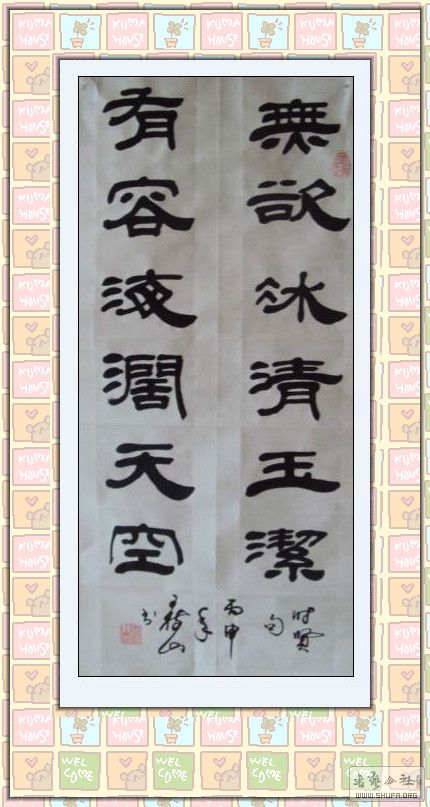 無欲冰清玉潔
有容海濶天空
时贤
句
丙申
年
书
KUMA
HOUSE
WEL
COME
WWW.SHUFA.ORG